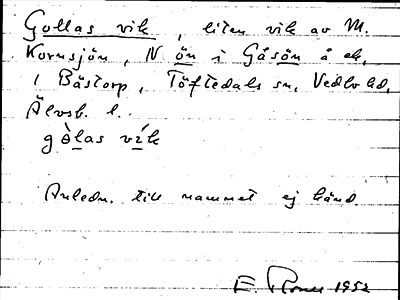 Gollas vik, liten vik av M.
Kornsjön, N ön i Gåsön å ek.
1 Bästorp, Töftedals sn, Vedbo hd,
Älvsb. l.
gòlas vík
Anledn. till namnet ej känd.
E. 1952